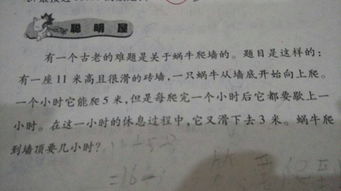 聪明屋
有一个古老的难题是关于蜗牛爬墙的。题目是这样的：
有一座 11 米高且很滑的砖墙，一只蜗牛从墙底开始向上爬。
一个小时它能爬 5 米，但是每爬完一个小时后它都要歇上一
小时。在这一小时的休息过程中，它又滑下去 3 米。蜗牛爬
到墙顶要几小时？